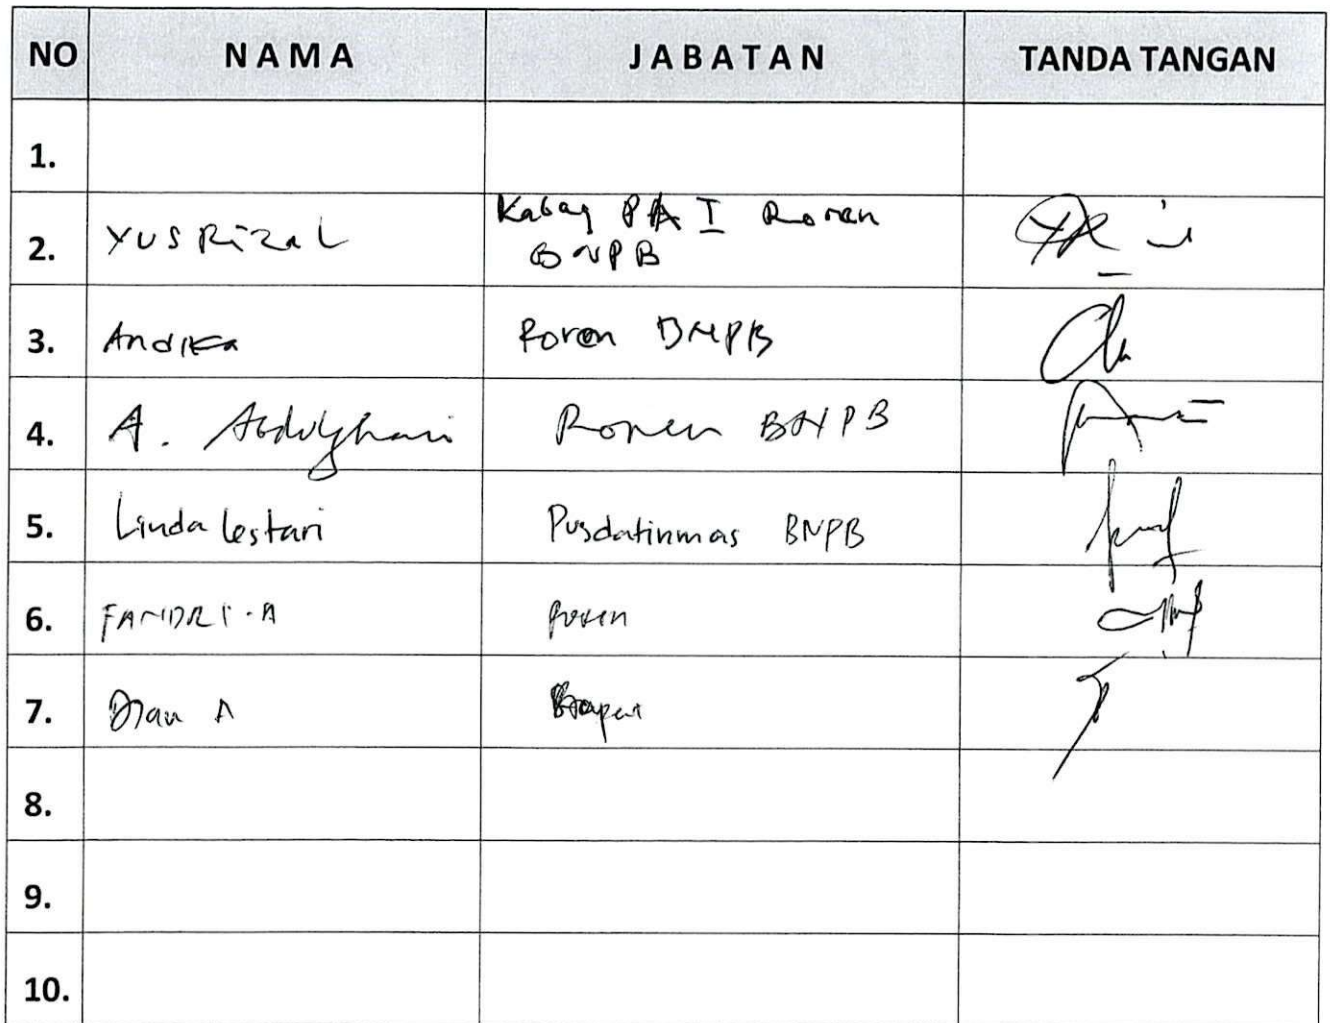 NO NAMA JABATAN TANDA TANGAN
1.
2. YUSRizaL Kabag PA I Roren
BNPB
3. Andika Roren BNPB
4. A. Abdulghani Roren BNPB
5. Linda Lestari Pusdatinmas BNPB
6. FANDRI.A Roren
7. Dian A
8.
9.
10.